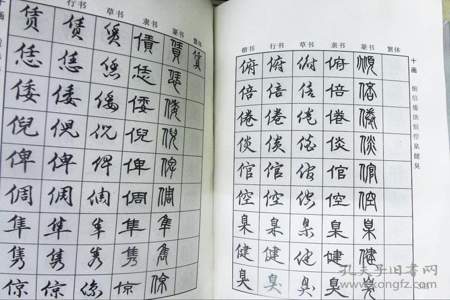 十画
行书 草书 隶书 篆书 繁体
赁 赁 赁 賃 賃 賃
恁 恁 恁 恁 恁
倭 倭 倭 倭 倭
倪 倪 倪 倪 倪
俾 俾 俾 俾 俾
倜 倜 倜 倜 倜
隼 隼 隼 隼 隼
隽 隽 隽 隽 隽
倞 倞 倞 倞 倞
楷书 行书 草书 隶书 篆书 繁体
俯 俯 俯 俯 俯
倍 倍 倍 倍 倍
倦 倦 倦 倦 倦
倓 倓 倓 倓 倓
倌 倌 倌 倌 倌
倥 倥 倥 倥 倥
臬 臬 臬 臬 臬
健 健 健 健 健
臭 臭 臭 臭 臭
十画
孔夫子旧书网